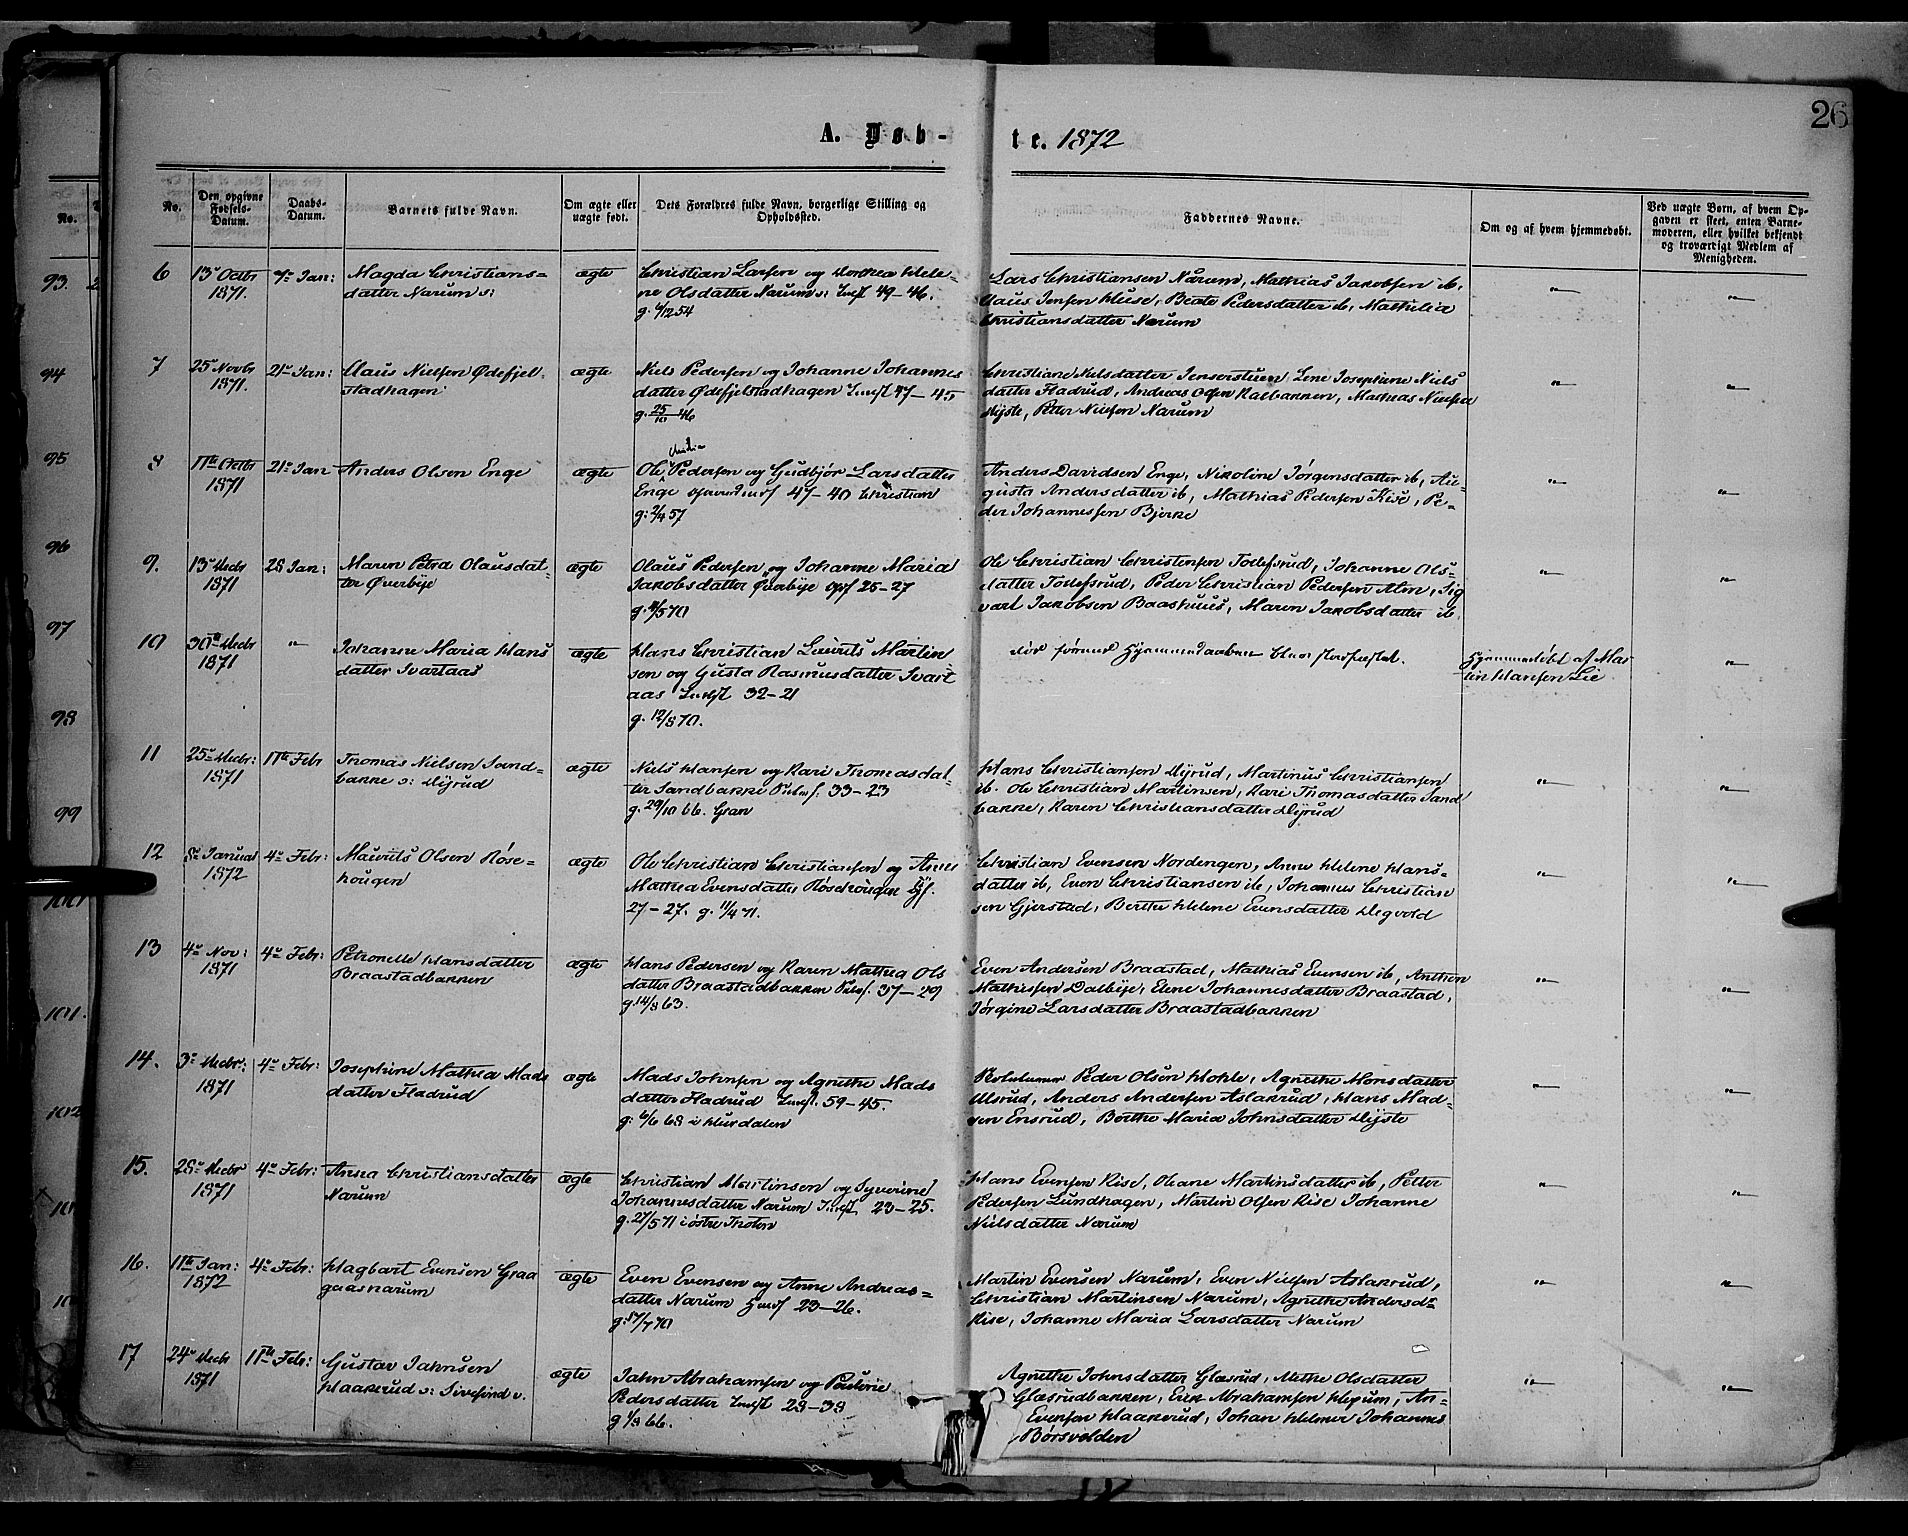 26
A. Døb-
te. 1872
No.
Den opgivne Fødsels-Datum.
Daabs-Datum.
Barnets fulde Navn.
Om ægte eller uægte født.
Dets Forældres fulde Navn, borgerlige Stilling og Opholdssted.
Faddernes Navne.
Om og af hvem hjemmedøbt.
Ved uægte Børn, af hvem Opgaven er skeet, enten Barnemoderen, eller hvilket bekjendt og troværdigt Medlem af Menigheden.
No.
93.
94
95
96
97
98
99
101.
102
6
13de Octbr 1871.
7de Jan:
Magda Christians=
datter Narum
ægte
Christian Larsen og Dorthea Hele-
ne Olsdatter Narum s: Indst 49-46.
g. 6/12 54
Lars Christiansen Narum, Mathias Jakobsen ib,
Claus Jensen Huse, Beate Pedersdatter ib, Mathilia
Christiansdatter Narum
"
"
7
25de Novbr 1871.
21de Jan:
Claus Nielsen Ødefjel
stadhagen
ægte
Niels Pedersen og Johanne Johannes
datter Ødefjelstadhagen Indst 47-45
g. 25/10 46
Christiane Nilsdatter Jensestuen Line Josephine Niels
datter Fladrud, Andreas Olsen Kalbakken, Mathias Nielsen
Hyste, Petter Nielsen Narum
"
"
8
11te Octbr 1871
21de Jan
Anders Olsen Enge
ægte
Ole Pedersen og Gudbjør Larsdatter
Enge 47-40 Christian
g: 2/4 57
Anders Davidsen Enge, Nikoline Jørgensdatter ib, Au-
gusta Andersdatter ib, Mathias Pedersen Kise, Pe-
der Johannessen Bjerke
"
"
9.
13de Decbr 1871
28 Jan:
Maren Petra Olausdat-
ter Øverbye
ægte
Olaus Pedersen og Johanne Maria
Jakobsdatter Øverbye 25-27
g. 4/5 70
Ole Christian Christensen Tollefsrud, Johanne Ols-
datter Tollefsrud, Peder Christian Pedersen Alm, Sig
vart Jakobsen Baashuus, Maren Jakobsdatter ib.
"
"
10
30te Decbr 1871
"
Johanne Maria Hans
datter Svartaas
ægte
Hans Christian Laurits Martin
sen og Gusta Rasmusdatter Svart
aas Indst 32-21
g. 12/8 70.
død førend Hjemmedaaben blev stadfæstet.
Hjemmedøbt af Mar
tin Hansen Lie
"
11
25de Decbr: 1871
11te Febr
Thomas Nielsen Sand-
bakke s: Dyrud
ægte
Niels Hansen og Kari Thomasdat-
ter Sandbakke 33-23
g. 29/10 66. Gran
Hans Christiansen Dyrud, Martinus Christiansen
ib. Ole Christian Martinsen, Kari Thomasdatter Sand
bakke, Karen Christiansdatter Dyrud
"
"
12
8de Januar 1872
4de Febr:
Maurits Olsen Røse-
hougen
ægte
Ole Christian Christiansen og Anne
Mathea Evensdatter Røsehougen
27-27. g. 11/4 71.
Christian Evensen Nordengen, Anne Helene Hans-
datter ib, Even Christiansen ib, Johannes Christian
sen Gjerstad, Berthe Helene Evensdatter Degvold
"
"
13
4de Nov: 1871
4de Febr:
Petronelle Hansdatter
Braastadbakken
ægte
Hans Pedersen og Karen Mathea Ols
datter Braastadbakken 37-29
g 14/8 63.
Even Andersen Braastad, Mathias Evensen ib, Anthon
Mathissen Dalbye, Elene Johannesdatter Braastad,
Jørgine Larsdatter Braastadbakken
"
"
14.
3de Decbr: 1871
4de Febr:
Josephine Mathea Mads
datter Fladrud
ægte
Mads Johnsen og Agnethe Mads
datter Fladrud Indst. 59-45.
g: 6/6 68 i Hurdalen
Peder Olsen Hohle, Agnethe Monsdatter
Ulsrud, Anders Andersen Aslakrud, Hans Mad-
sen Ensrud, Berthe Maria Johnsdatter Dyste
"
"
15.
28de Decbr 1871
4de Febr:
Anna Christiansdatter
Narum
ægte
Christian Martinsen og Syverine
Johannesdatter Narum Indst, 23-25.
g. 27/5 71 i østre Thoten
Hans Evensen Kise, Oleane Martinsdatter ib, Petter
Pedersen Lundhagen, Martin Olsen Kise Johanne
Nielsdatter Narum
"
"
16.
11te Jan: 1872
4de Febr:
Hagbart Evensen Graa
gaasnarum
ægte
Even Evensen og Anne Andreas=
datter Narum 23-26.
Martin Evensen Narum, Even Nielsen Aslakrud,
Christian Martinsen Narum, Agnethe Andersdr
Kise, Johanne Maria Larsdatter Narum
"
"
17
24de Decbr 1871
11te Febr:
Gustav Jahnsen
Haakerud s:
ægte
Jahn Abrahamsen og Pauline
Pedersdatter Indst 28-38
g 1/8 66.
Agnethe Johnsdatter Glæsrud, Mathe Olsdatter
Glæsrudbakken, Even Abrahamsen An-
Evensen Haakerud, Johan Helmer Johannes
Børsvolden
"
"